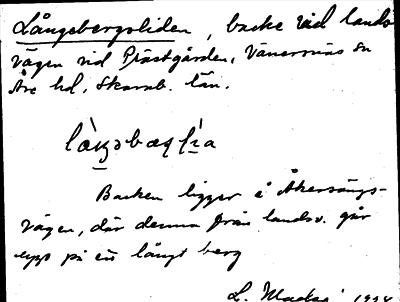 Långebergsliden, backe vid lands-
vägen vid Prästgården, Vänersnäs sn
Åse hd, Skarab. län.
Backen ligger å Åkersängs-
vägen, där denna från landsv. går
upp på ett långt berg
L.